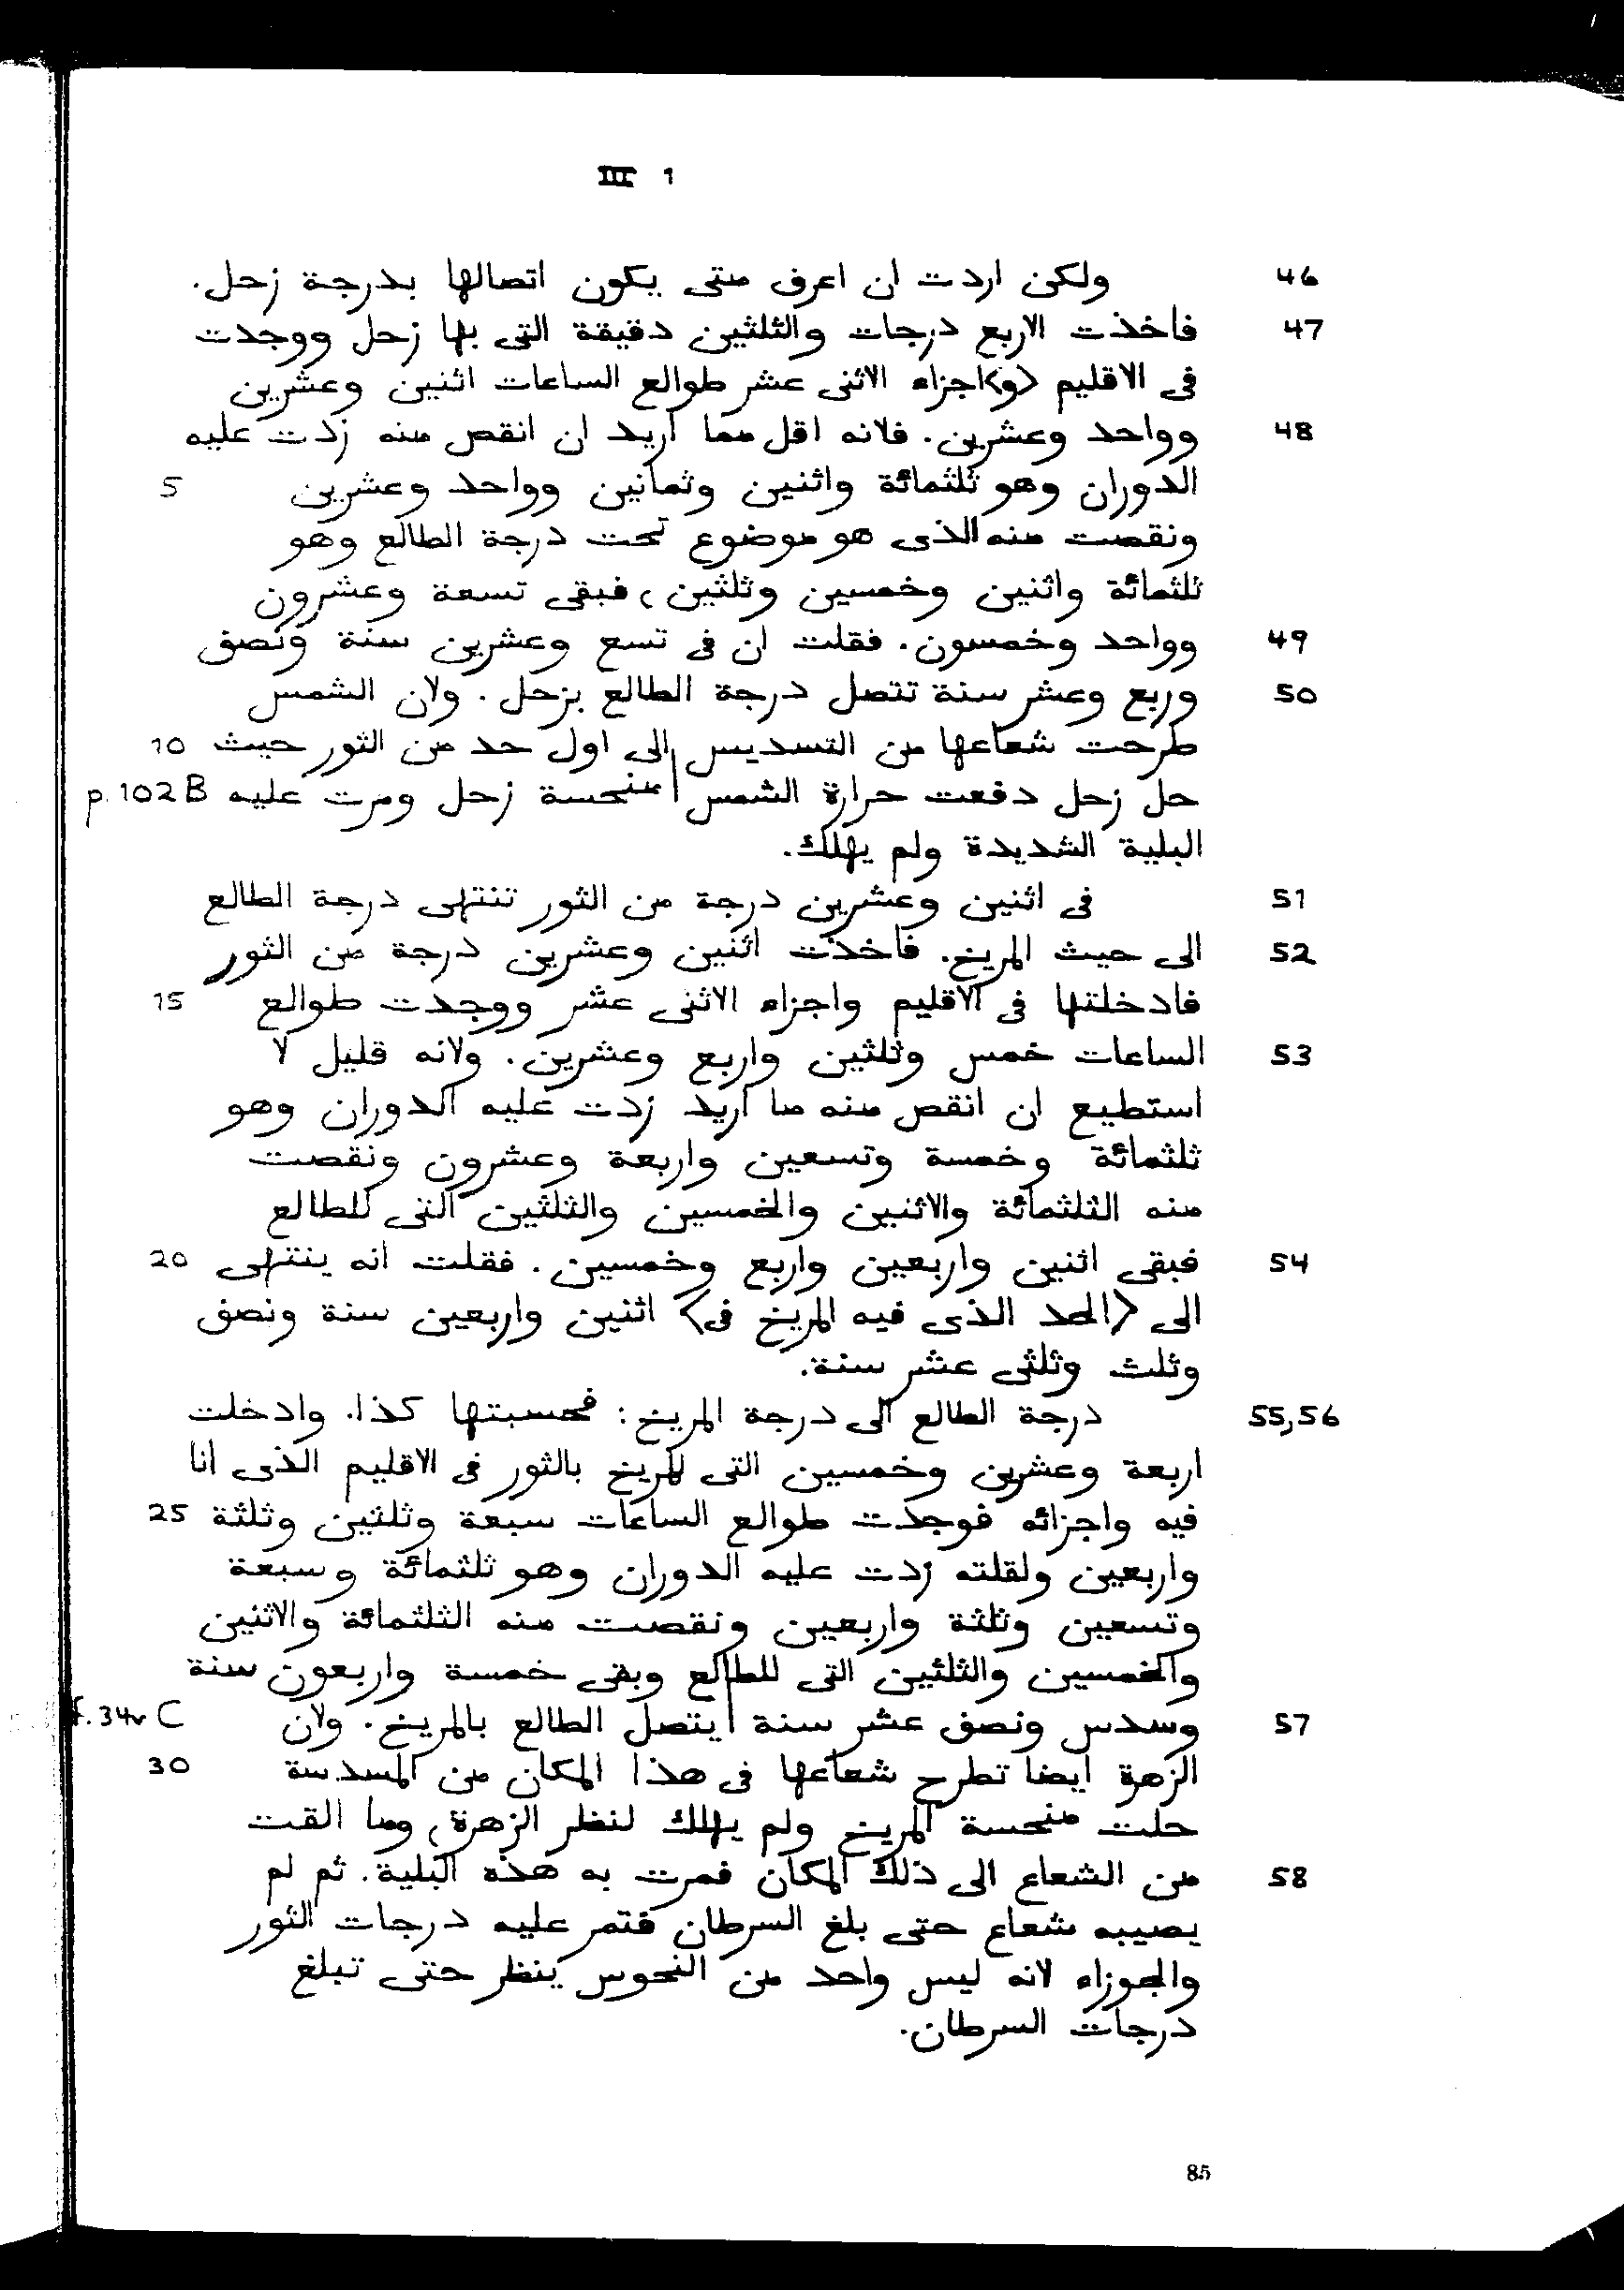 III 1
46 ولكن اردت ان اعرف متى يكون اتصالها بدرجة زحل.
47 فاخذت الاربع درجات والثلثين دقيقة التى بها زحل ووجدت
فى الاقليم <و>اجزاء الاثنى عشر طوالع الساعات اثنين وعشرين
48 وواحد وعشرين. فلانه اقل مما اريد ان انقص منه زدت عليه
الدوران وهو ثلثمائة واثنين وثمانين وواحد وعشرين 5
ونقصت منه الذى هو موضوع تحت درجة الطالع وهو
ثلثمائة واثنين وخمسين وثلثين، فبقى تسعة وعشرون
49 وواحد وخمسون. فقلت ان فى تسع وعشرين سنة ونصف
50 وربع وعشر سنة تتصل درجة الطالع بزحل. ولان الشمس
طرحت شعاعها من التسديس الى اول حد من الثور حيث 10
حل زحل دفعت حرارة الشمس | منحسة زحل ومرت عليه p. 102 B
البلية الشديدة ولم يهلك.
51 فى اثنين وعشرين درجة من الثور تنتهى درجة الطالع
52 الى حيث المريخ. فاخذت اثنين وعشرين درجة من الثور
فادخلتها فى الاقليم واجزاء الاثنى عشر ووجدت طوالع 15
53 الساعات خمس وثلثين واربع وعشرين. ولانه قليل لا
استطيع ان انقص منه ما اريد زدت عليه الدوران وهو
ثلثمائة وخمسة وتسعين واربعة وعشرون ونقصت
منه الثلثمائة والاثنين والخمسين والثلثين التى للطالع
54 فبقى اثنين واربعين واربع وخمسين. فقلت انه ينتهى 20
الى <الحد الذى فيه المريخ فى> اثنين واربعين سنة ونصف
وثلث وثلثى عشر سنة.
55,56 درجة الطالع الى درجة المريخ: فحسبتها كذا. وادخلت
اربعة وعشرين وخمسين التى للمريخ بالثور فى الاقليم الذى انا
فيه واجزائه فوجدت طوالع الساعات سبعة وثلثين وثلثة 25
واربعين ولقلته زدت عليه الدوران وهو ثلثمائة وسبعة
وتسعين وثلثة واربعين ونقصت منه الثلثمائة والاثنين
والخمسين والثلثين التى للطالع وبقى خمسة واربعون سنة
57 وسدس ونصف عشر سنة | يتصل الطالع بالمريخ. ولان f. 34v C
الزهرة ايضا تطرح شعاعها فى هذا المكان من المسدسة 30
حلت منحسة المريخ ولم يهلك لنظر الزهرة، وما القت
58 من الشعاع الى ذلك المكان فمرت به هذه البلية. ثم لم
يصيبه شعاع حتى بلغ السرطان فتمر عليه درجات الثور
والجوزاء لانه ليس واحد من النحوس ينظر حتى تبلغ
درجات السرطان.
85